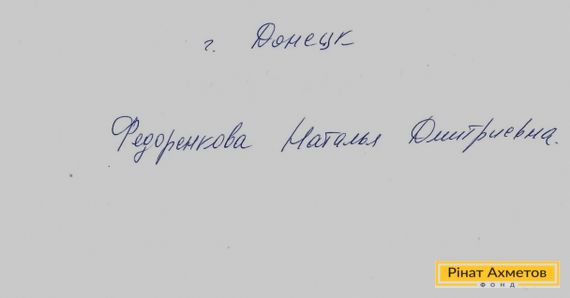 г. Донецк
Федоренкова Наталья Дмитриевна.
Рінат Ахметов
ФОНД